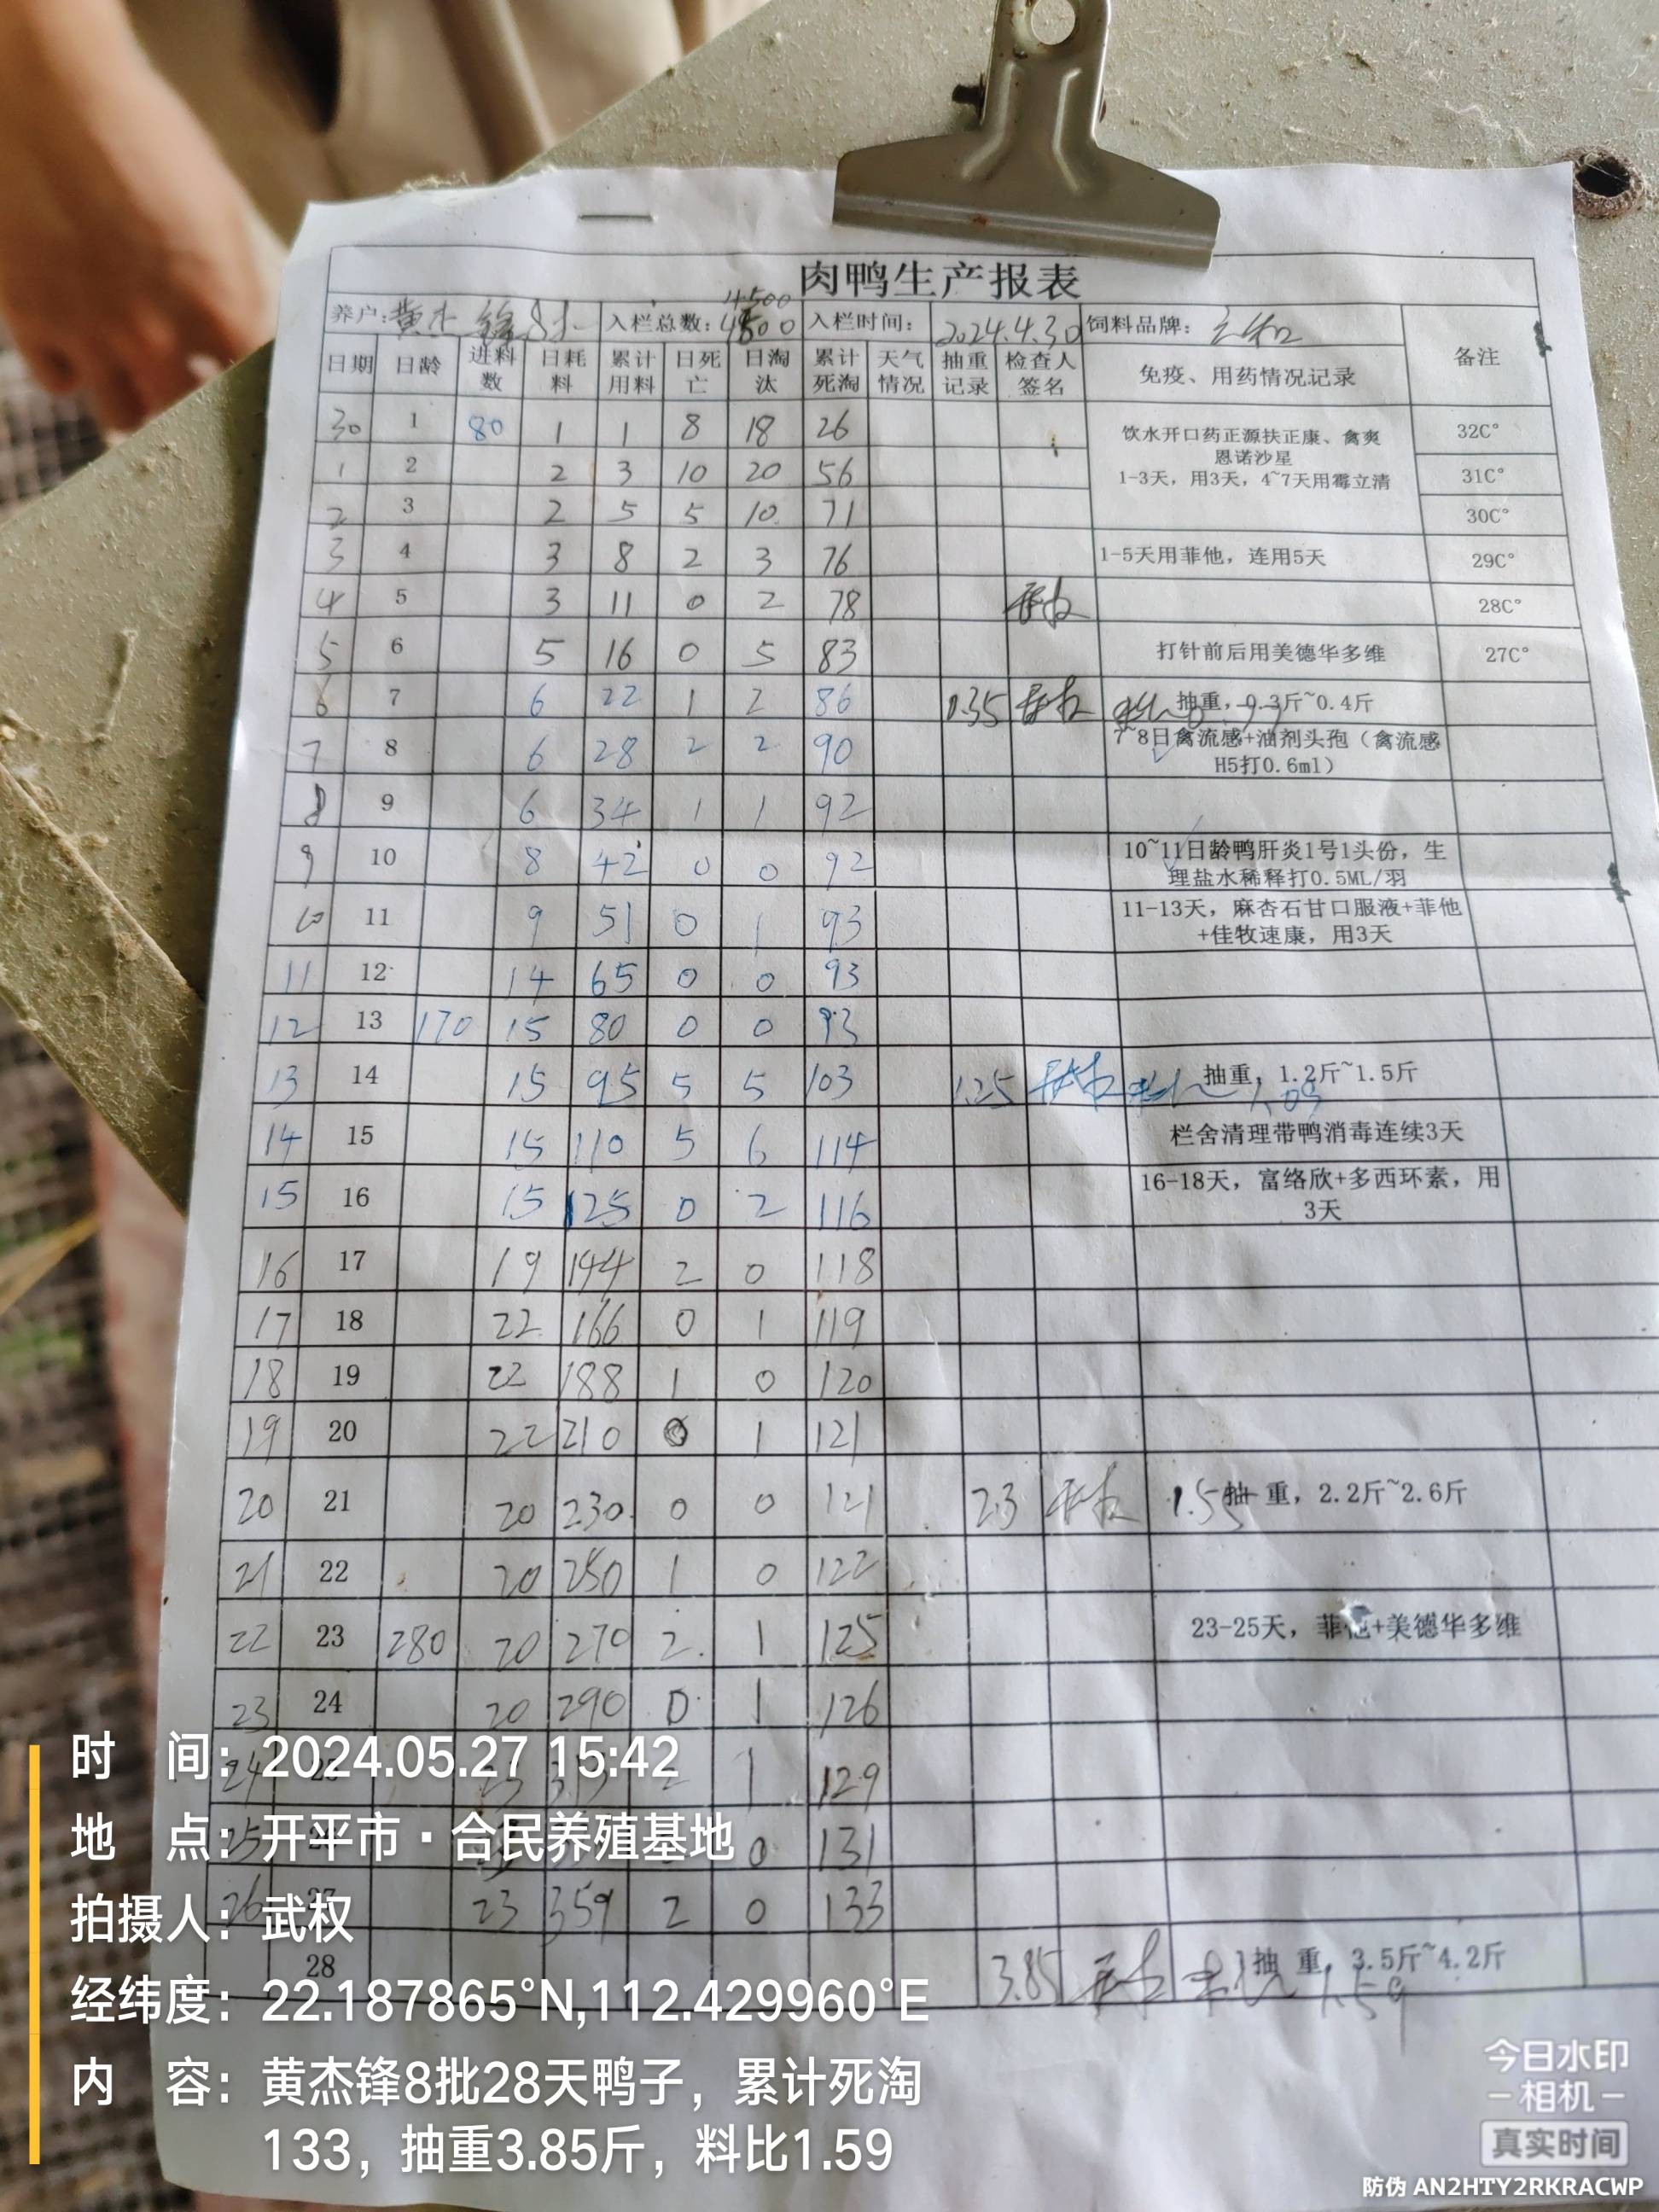 肉鸭生产报表
养户: 黄杰锋 入栏总数: 4500 4800 入栏时间: 2024.4.30 饲料品牌:
日期 日龄 进料数 日耗料 累计用料 日死亡 日淘汰 累计死淘 天气情况 抽重记录 检查人签名 免疫、用药情况记录 备注
30 1 80 1 1 8 18 26 饮水开口药正源扶正康、禽爽 32C°
恩诺沙星
1 2 2 3 10 20 56 1-3天，用3天，4~7天用霉立清 31C°
2 3 2 5 5 10 71 30C°
3 4 3 8 2 3 76 1-5天用菲他，连用5天 29C°
4 5 3 11 0 2 78 28C°
5 6 5 16 0 5 83 打针前后用美德华多维 27C°
6 7 6 22 1 2 86 0.35 抽重，0.3斤~0.4斤
7 8 6 28 2 2 90 7~8日禽流感+油剂头孢（禽流感
H5打0.6ml）
8 9 6 34 1 1 92
9 10 8 42 0 0 92 10~11日龄鸭肝炎1号1头份，生
理盐水稀释打0.5ML/羽
10 11 9 51 0 1 93 11-13天，麻杏石甘口服液+菲他
+佳牧速康，用3天
11 12 14 65 0 0 93
12 13 170 15 80 0 0 93
13 14 15 95 5 5 103 1.25 抽重，1.2斤~1.5斤
1.09
14 15 15 110 5 6 114 栏舍清理带鸭消毒连续3天
15 16 15 125 0 2 116 16-18天，富络欣+多西环素，用
3天
16 17 19 144 2 0 118
17 18 22 166 0 1 119
18 19 22 188 1 0 120
19 20 22 210 0 1 121
20 21 20 230 0 0 121 2.3 抽重，2.2斤~2.6斤
21 22 20 250 1 0 122
22 23 280 20 270 2 1 125 23-25天，菲他+美德华多维
23 24 20 290 0 1 126
24 1 129
25 0 131
26 27 23 359 2 0 133
28 3.85 抽重，3.5斤~4.2斤
1.59
时 间：2024.05.27 15:42
地 点：开平市·合民养殖基地
拍摄人：武权
经纬度：22.187865°N,112.429960°E
内 容：黄杰锋8批28天鸭子，累计死淘
133，抽重3.85斤，料比1.59
今日水印
相机
真实时间
防伪 AN2HTY2RKRACWP